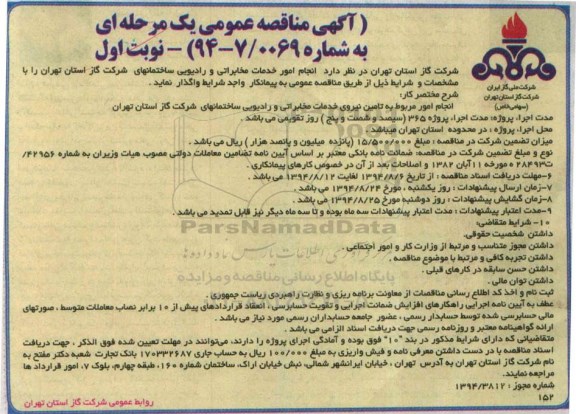 ( آگهی مناقصه عمومی یک مرحله ای
به شماره ۹۴-۷/۰۰۶۹) – نوبت اول
شرکت ملی گاز ایران
شرکت گاز استان تهران
(سهامی خاص)
شرکت گاز استان تهران در نظر دارد انجام امور خدمات مخابراتی و رادیویی ساختمانهای شرکت گاز استان تهران را با
مشخصات و شرایط ذیل از طریق مناقصه عمومی به پیمانکار واجد شرایط واگذار نماید .
شرح مختصر کار:
انجام امور مربوط به تامین نیروی خدمات مخابراتی و رادیویی ساختمانهای شرکت گاز استان تهران
مدت اجرا، پروژه: مدت اجرا، پروژه ۳۶۵ (سیصد و شصت و پنج ) روز تقویمی می باشد .
محل اجرا، پروژه : در محدوده استان تهران میباشد .
میزان تضمین شرکت در مناقصه : مبلغ ۱۵/۵۰۰/۰۰۰ (پانزده میلیون و پانصد هزار ) ریال می باشد .
نوع و مبلغ تضمین شرکت در مناقصه: ضمانت نامه بانکی معتبر بر اساس آیین نامه تضامین معاملات دولتی مصوب هیات وزیران به شماره ۴۲۹۵۶/
ت۲۸۴۹۳ ه مورخه ۱۱ آبان ۱۳۸۲ و اصلاحات بعد از آن در خصوص کارهای پیمانکاری .
۶-مهلت دریافت اسناد مناقصه : از تاریخ ۱۳۹۴/۸/۶ لغایت ۱۳۹۴/۸/۱۲ می باشد .
۷-زمان ارسال پیشنهادات : روز یکشنبه ، مورخ ۱۳۹۴/۸/۲۴ می باشد .
۸-زمان گشایش پیشنهادات : روز دوشنبه مورخ ۱۳۹۴/۸/۲۵ می باشد .
۹-مدت اعتبار پیشنهادات : مدت اعتبار پیشنهادات سه ماه بوده و تا سه ماه دیگر نیز قابل تمدید می باشد .
۱۰- شرایط متقاضی:
داشتن شخصیت حقوقی.
داشتن مجوز متناسب و مرتبط از وزارت کار و امور اجتماعی .
داشتن تجربه کافی و مرتبط با موضوع مناقصه .
داشتن حسن سابقه در کارهای قبلی .
داشتن توان مالی .
ثبت نام و اخذ کد اطلاع رسانی مناقصات از معاونت برنامه ریزی و نظارت راهبردی ریاست جمهوری .
عطف به آیین نامه اجرایی راهکارهای افزایش ضمانت اجرایی و تقویت حسابرسی ، انعقاد قراردادهای بیش از ۱۰ برابر نصاب معاملات متوسط ، صورتهای
مالی حسابرسی شده توسط حسابدار رسمی ، عضور جامعه حسابداران رسمی مورد نیاز می باشد .
ارائه گواهینامه معتبر و روزنامه رسمی جهت دریافت اسناد الزامی می باشد .
متقاضیانی که دارای شرایط مذکور در بند "۱۰" فوق بوده و آمادگی اجرای پروژه را دارند، می‌توانند در مهلت تعیین شده فوق الذکر ، جهت دریافت
اسناد مناقصه با در دست داشتن معرفی نامه و فیش واریزی به مبلغ ۱۰۰/۰۰۰ ریال به حساب جاری ۱۷۰۳۳۲۶۸۷ بانک تجارت شعبه دکتر مفتح به
نام شرکت گاز استان تهران به آدرس تهران ، خیابان ایرانشهر شمالی، نبش خیابان اراک، ساختمان شماره ۱۶۰، طبقه چهارم، بلوک ۷، امور قرارداد ها
مراجعه نمایند.
شماره مجوز : ۱۳۹۴/۳۸۱۲
۱۵۲
روابط عمومی شرکت گاز استان تهران
ParsNamadData
پایگاه اطلاع رسانی مناقصه و مزایده